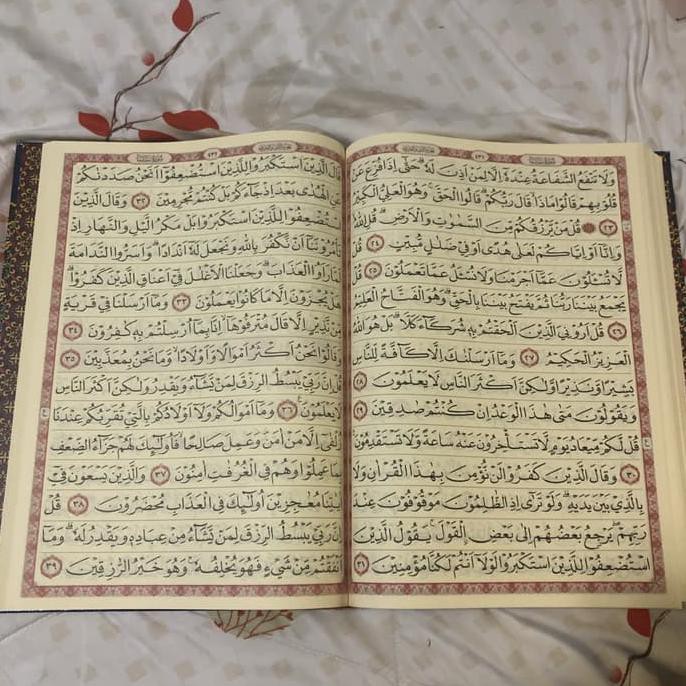 ٤٣١
وَلَا تَنْفَعُ الشَّفَاعَةُ عِنْدَهُ إِلَّا لِمَنْ أَذِنَ لَهُ حَتَّى إِذَا فُزِّعَ عَنْ
قُلُوبِهِمْ قَالُوا مَاذَا قَالَ رَبُّكُمْ قَالُوا الْحَقَّ وَهُوَ الْعَلِيُّ الْكَبِيرُ
٢٣ قُلْ مَنْ يَرْزُقُكُمْ مِنَ السَّمٰوَاتِ وَالْأَرْضِ قُلِ اللّٰهُ
وَإِنَّا أَوْ إِيَّاكُمْ لَعَلَى هُدًى أَوْ فِي ضَلَالٍ مُبِينٍ ٢٤ قُلْ
لَا تُسْئَلُونَ عَمَّا أَجْرَمْنَا وَلَا نُسْئَلُ عَمَّا تَعْمَلُونَ ٢٥ قُلْ
يَجْمَعُ بَيْنَنَا رَبُّنَا ثُمَّ يَفْتَحُ بَيْنَنَا بِالْحَقِّ وَهُوَ الْفَتَّاحُ الْعَلِيمُ
٢٦ قُلْ أَرُونِيَ الَّذِينَ أَلْحَقْتُمْ بِهِ شُرَكَاءَ كَلَّا بَلْ هُوَ اللّٰهُ
الْعَزِيزُ الْحَكِيمُ ٢٧ وَمَا أَرْسَلْنَاكَ إِلَّا كَافَّةً لِلنَّاسِ
بَشِيرًا وَنَذِيرًا وَلٰكِنَّ أَكْثَرَ النَّاسِ لَا يَعْلَمُونَ ٢٨
وَيَقُولُونَ مَتَى هٰذَا الْوَعْدُ إِنْ كُنْتُمْ صٰدِقِينَ ٢٩
قُلْ لَكُمْ مِيعَادُ يَوْمٍ لَا تَسْتَأْخِرُونَ عَنْهُ سَاعَةً وَلَا تَسْتَقْدِمُونَ
٣٠ وَقَالَ الَّذِينَ كَفَرُوا لَنْ نُؤْمِنَ بِهٰذَا الْقُرْاٰنِ وَلَا
بِالَّذِي بَيْنَ يَدَيْهِ وَلَوْ تَرَى إِذِ الظّٰلِمُونَ مَوْقُوفُونَ عِنْدَ
رَبِّهِمْ يَرْجِعُ بَعْضُهُمْ إِلَى بَعْضٍ الْقَوْلَ يَقُولُ الَّذِينَ
اسْتُضْعِفُوا لِلَّذِينَ اسْتَكْبَرُوا لَوْلَا أَنْتُمْ لَكُنَّا مُؤْمِنِينَ ٣١
٤٣٢
قَالَ الَّذِينَ اسْتَكْبَرُوا لِلَّذِينَ اسْتُضْعِفُوا أَنَحْنُ صَدَدْنَاكُمْ
عَنِ الْهُدَى بَعْدَ إِذْ جَاءَكُمْ بَلْ كُنْتُمْ مُجْرِمِينَ ٣٢ وَقَالَ الَّذِينَ
اسْتُضْعِفُوا لِلَّذِينَ اسْتَكْبَرُوا بَلْ مَكْرُ اللَّيْلِ وَالنَّهَارِ إِذْ
تَأْمُرُونَنَا أَنْ نَكْفُرَ بِاللّٰهِ وَنَجْعَلَ لَهُ أَنْدَادًا وَأَسَرُّوا النَّدَامَةَ
لَمَّا رَأَوُا الْعَذَابَ وَجَعَلْنَا الْأَغْلَالَ فِي أَعْنَاقِ الَّذِينَ كَفَرُوا
هَلْ يُجْزَوْنَ إِلَّا مَا كَانُوا يَعْمَلُونَ ٣٣ وَمَا أَرْسَلْنَا فِي قَرْيَةٍ
مِنْ نَذِيرٍ إِلَّا قَالَ مُتْرَفُوهَا إِنَّا بِمَا أُرْسِلْتُمْ بِهِ كٰفِرُونَ ٣٤
وَقَالُوا نَحْنُ أَكْثَرُ أَمْوَالًا وَأَوْلَادًا وَمَا نَحْنُ بِمُعَذَّبِينَ ٣٥
قُلْ إِنَّ رَبِّي يَبْسُطُ الرِّزْقَ لِمَنْ يَشَاءُ وَيَقْدِرُ وَلٰكِنَّ أَكْثَرَ النَّاسِ
لَا يَعْلَمُونَ ٣٦ وَمَا أَمْوَالُكُمْ وَلَا أَوْلَادُكُمْ بِالَّتِي تُقَرِّبُكُمْ عِنْدَنَا
زُلْفَى إِلَّا مَنْ اٰمَنَ وَعَمِلَ صَالِحًا فَأُولٰئِكَ لَهُمْ جَزَاءُ الضِّعْفِ
بِمَا عَمِلُوا وَهُمْ فِي الْغُرُفٰتِ اٰمِنُونَ ٣٧ وَالَّذِينَ يَسْعَوْنَ فِي
اٰيَاتِنَا مُعٰجِزِينَ أُولٰئِكَ فِي الْعَذَابِ مُحْضَرُونَ ٣٨ قُلْ
إِنَّ رَبِّي يَبْسُطُ الرِّزْقَ لِمَنْ يَشَاءُ مِنْ عِبَادِهِ وَيَقْدِرُ لَهُ وَمَا
أَنْفَقْتُمْ مِنْ شَيْءٍ فَهُوَ يُخْلِفُهُ وَهُوَ خَيْرُ الرّٰزِقِينَ ٣٩